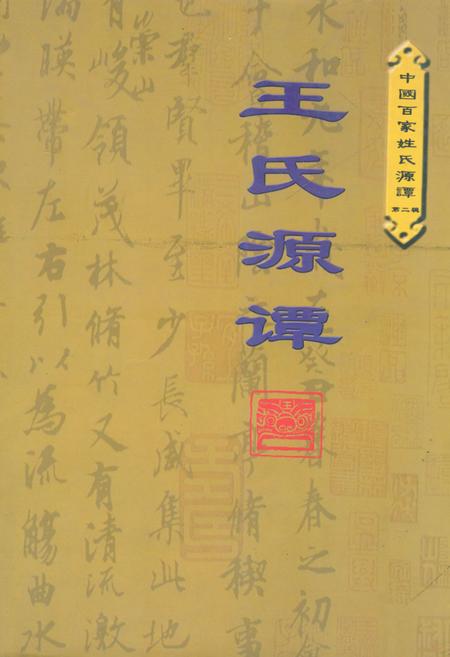 中國百家姓氏源譚
第二輯
王氏源谭
永和九年癸丑春之初會
于會稽山蘭亭脩稧事
也羣賢畢至少長咸集此地
有崇山峻領茂林脩竹又有清流激
湍暎帶左右引以為流觴曲水